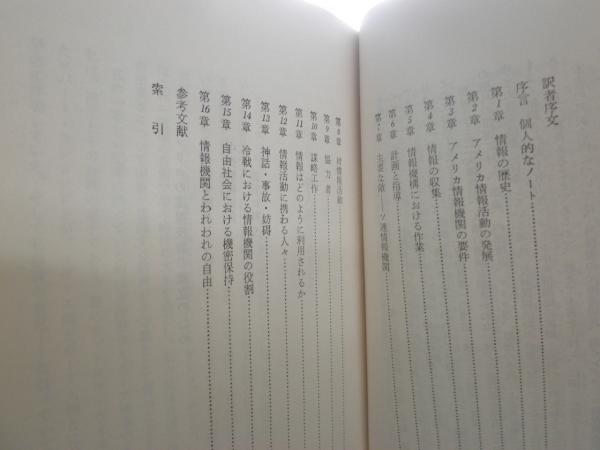 訳者序文
序言　個人的なノート
第1章　情報の歴史
第2章　アメリカ情報活動の発展
第3章　アメリカ情報機関の要件
第4章　情報の収集
第5章　情報機構における作業
第6章　計画と指導
第7章　主要な敵――ソ連情報機関
第8章　対情報活動
第9章　協力者
第10章　謀略工作
第11章　情報はどのように利用されるか
第12章　情報活動に携わる人々
第13章　神話・事故・妨碍
第14章　冷戦における情報機関の役割
第15章　自由社会における機密保持
第16章　情報機関とわれわれの自由
参考文献
索　引